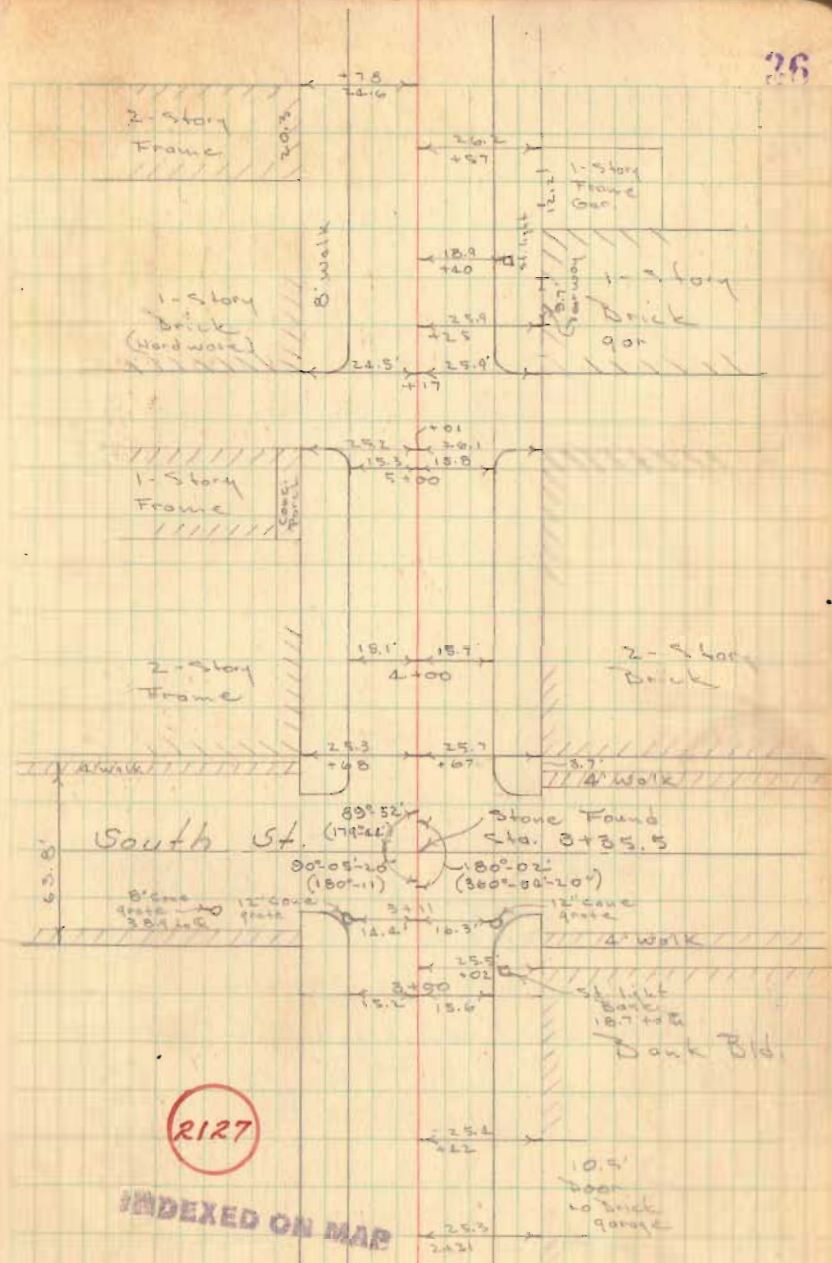 26
+78
24.6
2-Story
Frame
20.3
26.2
+57
1-Story
Frame
Gar.
12.2'
8' Walk
18.9
+40
St. light
1-Story
Brick
(Hardware)
25.9
+25
(Doorway)
1-Story
Brick
gar
24.5' 25.9'
+17
+01
25.2 26.1
15.3 15.8
5+00
1-Story
Frame
Conc.
Porch
15.1' 15.7'
4+00
2-Story
Frame
2-Story
Brick
25.3 25.7
+68 +67
3.7'
4' Walk
4' Walk
63.8'
South St.
89°-52'
(179°-44')
Stone Found
Sta. 3+35.5
90°-05'-20"
(180°-11')
180°-02'
(360°-04'-20")
8" cone
grate
38.9 to ℄
12" cone
grate
3+11
14.4' 16.3'
12" cone
grate
4' Walk
25.5
+02
3+00
15.2' 15.6'
St. light
Base
18.7 to ℄
Bank Bld.
2127
25.4
+42
10.5'
Door
to Brick
garage
25.3
2+31
INDEXED ON MAP